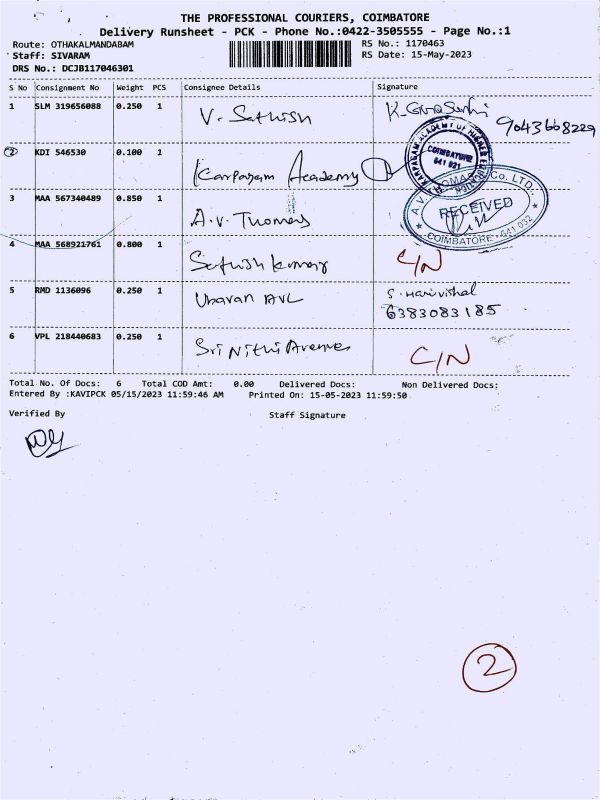 THE PROFESSIONAL COURIERS, COIMBATORE
Delivery Runsheet - PCK - Phone No.:0422-3505555 - Page No.:1
Route: OTHAKALMANDABAM RS No.: 1170463
Staff: SIVARAM RS Date: 15-May-2023
DRS No.: DCJB117046301
S No Consignment No Weight PCS Consignee Details Signature
1 SLM 319656088 0.250 1 V. Sathish
9043668229
2 KDI 546530 0.100 1 Karpagam Academy
KARPAGAM ACADEMY OF HIGHER EDUCATION
COIMBATORE
641 021
3 MAA 567340489 0.850 1 A.V. Thomas
A.V. THOMAS & Co. LTD.,
RECEIVED
COIMBATORE - 641 032
4 MAA 568921761 0.800 1 Sathish kumar C/N
5 RMD 1136096 0.250 1 AVL S. Harivishal
6383083185
6 VPL 218440683 0.250 1 Sri Nithi Avenues C/N
Total No. Of Docs: 6 Total COD Amt: 0.00 Delivered Docs: Non Delivered Docs:
Entered By :KAVIPCK 05/15/2023 11:59:46 AM Printed On: 15-05-2023 11:59:50
Verified By Staff Signature
2